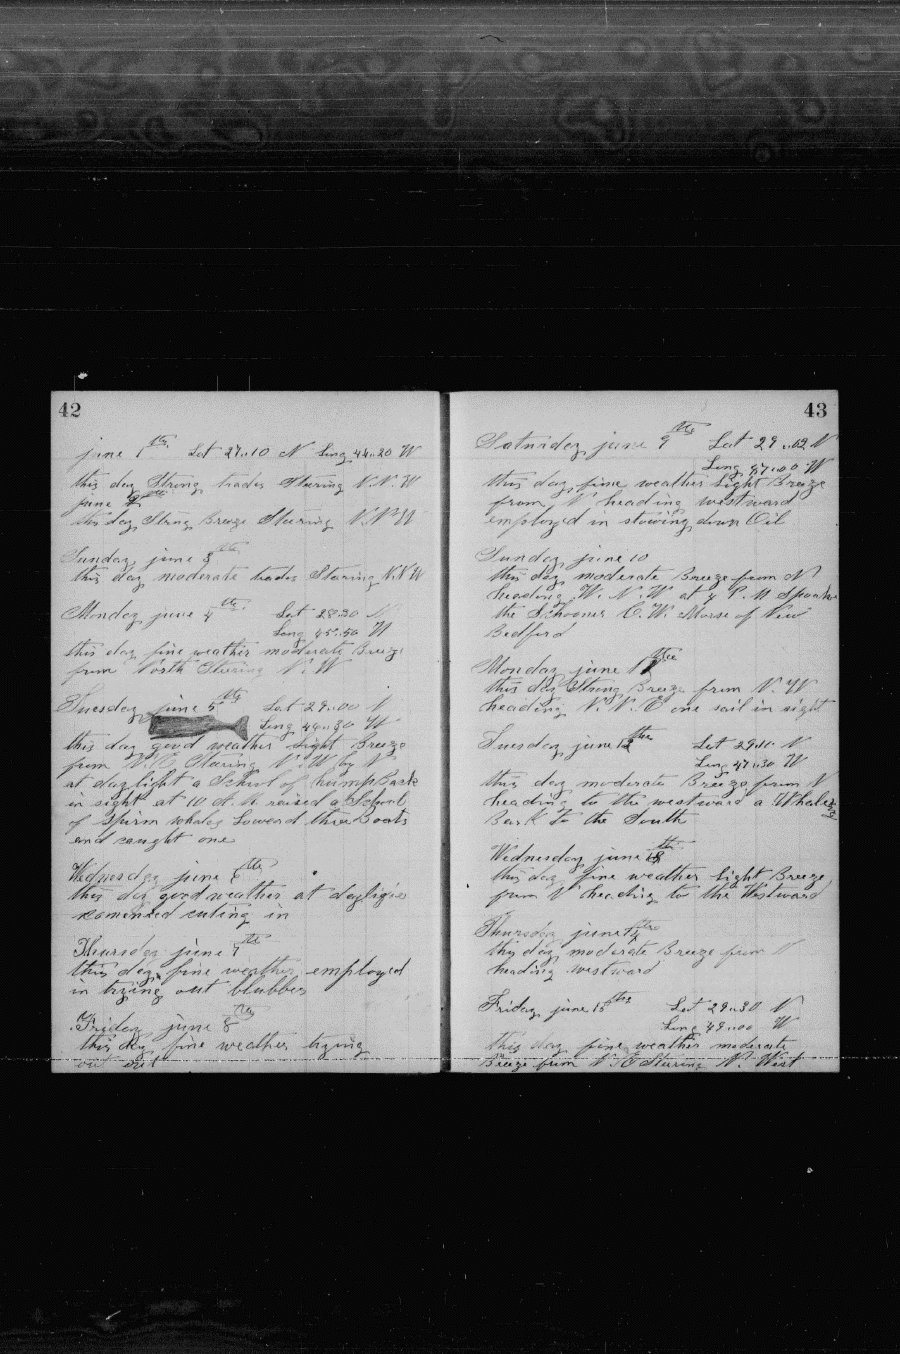 42
june 1th Lat 27..10 N Long 44..20 W
this day Strong trades Stearing N.N.W
june 2
this day Strong Breeze Stearing N.N.W
Sunday june 3th
this day moderate trades Stearing N.N.W
Monday june 4th Lat 28..30 N
Long 45..50 W
this day fine weather moderate Breeze
from North Stearing N.W
Tuesday june 5th Lat 29..00 N
Long 46..30 W
this day good weather Light Breeze
from N.E Stearing N.W by N
at daylight a School of humpBack
in sight at 10 A.M raised a School
of Spirm whales Lowerd three Boats
and caught one
Wednesday june 6th
this day good weather at daylight
comenced cuting in
Thursday june 7th
this day fine weather employed
in trying out blubber
Friday june 8th
this day fine weather trying
out oil
43
Saturday june 9th Lat 29..02 N
Long 47..00 W
this day fine weather Light Breeze
from N heading westward
employed in stowing down Oil
Sunday june 10
this day moderate Breeze from N
heading W.N.W at 4 P.M Spoake
the Schooner C.W. Morse of New
Bedford
Monday june 11th
this day Strong Breeze from N.W
heading N.N.E one sail in sight
Tuesday june 12th Lat 29..11 N
Long 47..30 W
this day moderate Breeze from N
heading to the westward a Whaleing
Bark to the South
Wednesday june 13th
this day fine weather Light Breeze
from N heading to the Westward
Thursday june 14th
this day moderate Breeze from N
heading westward
Friday june 15th Lat 29..30 N
Long 49..00 W
this day fine weather moderate
Breeze from N.E Stearing N. West